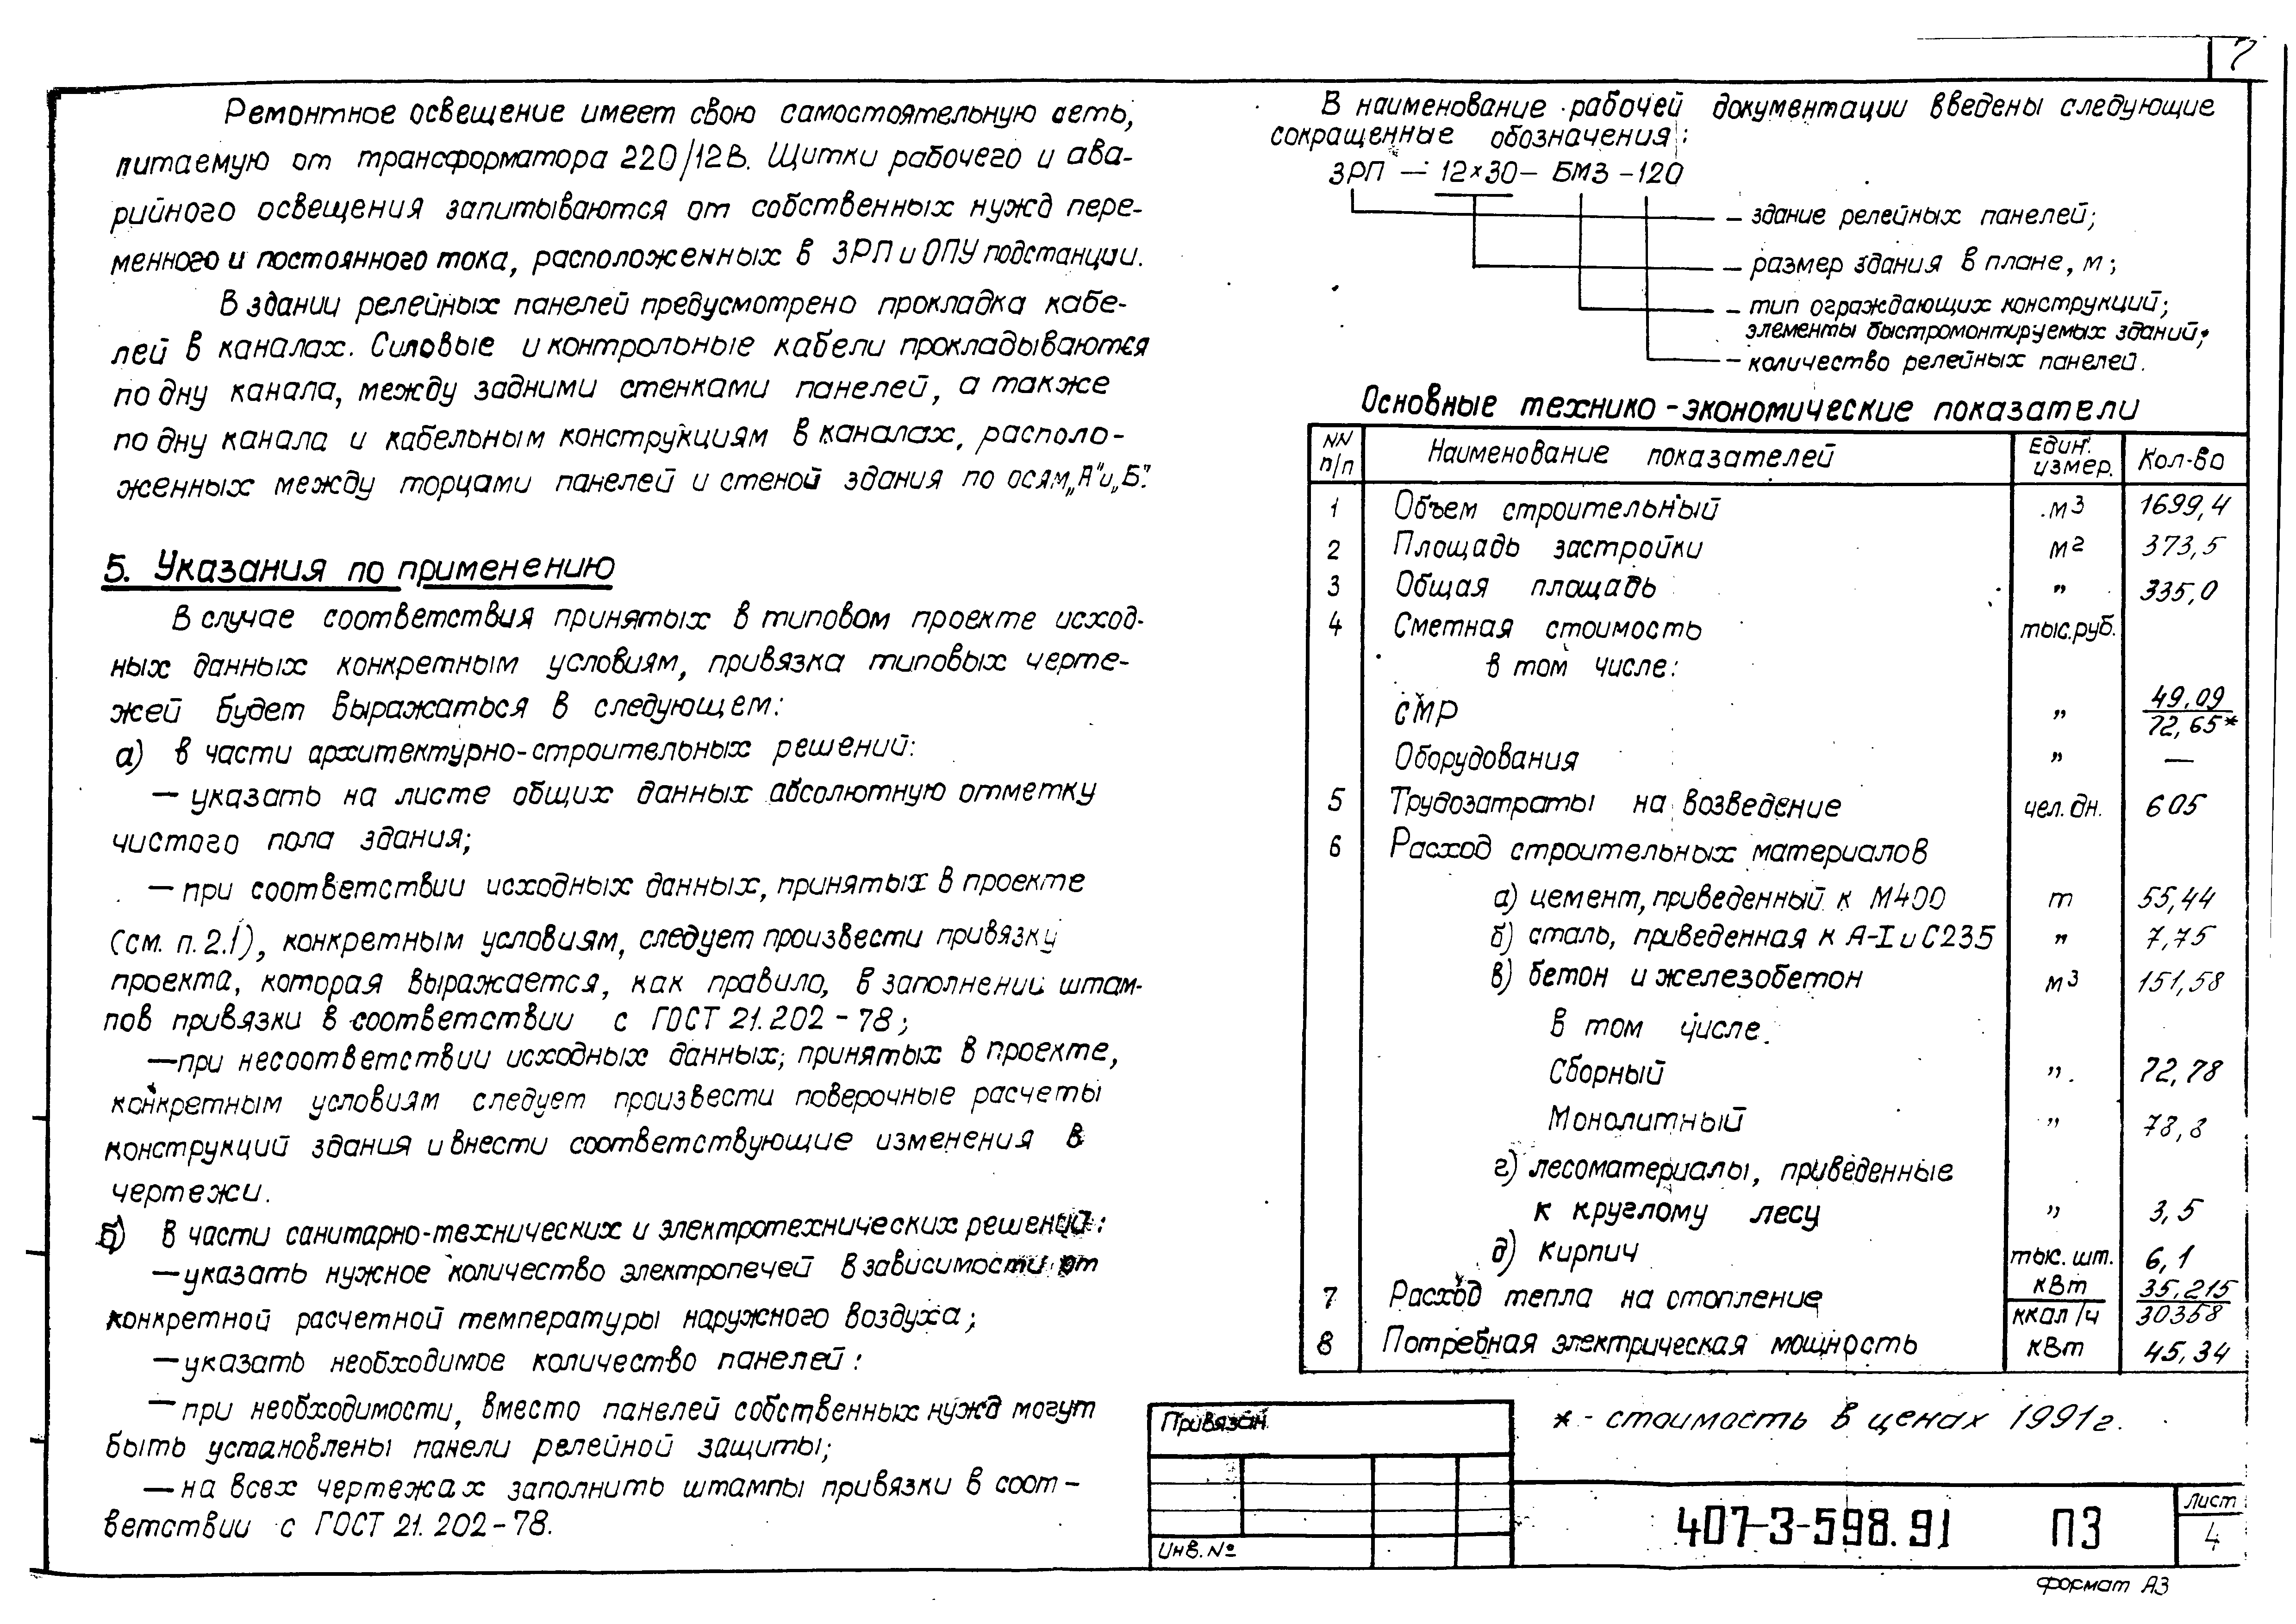 7
Ремонтное освещение имеет свою самостоятельную сеть,
питаемую от трансформатора 220/12В. Щитки рабочего и ава-
рийного освещения запитываются от собственных нужд пере-
менного и постоянного тока, расположенных в ЗРП и ОПУ подстанции.
В здании релейных панелей предусмотрено прокладка кабе-
лей в каналах. Силовые и контрольные кабели прокладываются
по дну канала, между задними стенками панелей, а также
по дну канала и кабельным конструкциям в каналах, располо-
женных между торцами панелей и стеной здания по осям „А" и „Б".
5. Указания по применению
В случае соответствия принятых в типовом проекте исход-
ных данных конкретным условиям, привязка типовых черте-
жей будет выражаться в следующем:
а) в части архитектурно-строительных решений:
— указать на листе общих данных абсолютную отметку
чистого пола здания;
— при соответствии исходных данных, принятых в проекте
(см. п. 2.1), конкретным условиям, следует произвести привязку
проекта, которая выражается, как правило, в заполнении штам-
пов привязки в соответствии с ГОСТ 21.202-78;
— при несоответствии исходных данных, принятых в проекте,
конкретным условиям следует произвести поверочные расчеты
конструкций здания и внести соответствующие изменения в
чертежи.
б) в части санитарно-технических и электротехнических решений:
— указать нужное количество электропечей в зависимости от
конкретной расчетной температуры наружного воздуха;
— указать необходимое количество панелей:
— при необходимости, вместо панелей собственных нужд могут
быть установлены панели релейной защиты;
— на всех чертежах заполнить штампы привязки в соот-
ветствии с ГОСТ 21.202-78.
В наименование рабочей документации введены следующие
сокращенные обозначения:
ЗРП - 12×30 - БМЗ - 120
- здание релейных панелей;
- размер здания в плане, м;
- тип ограждающих конструкций;
элементы быстромонтируемых зданий;
- количество релейных панелей.
Основные технико-экономические показатели
NN п/п Наименование показателей Един. измер. Кол-во
1 Объем строительный м3 1699,4
2 Площадь застройки м2 373,5
3 Общая площадь " 335,0
4 Сметная стоимость тыс.руб.
в том числе:
СМР " 49.09
72,65*
Оборудования " —
5 Трудозатраты на возведение чел.дн. 605
6 Расход строительных материалов
а) цемент, приведенный к М400 т 55,44
б) сталь, приведенная к А-I и С235 " 7,75
в) бетон и железобетон м3 151,58
в том числе.
Сборный " 72,78
Монолитный " 78,8
г) лесоматериалы, приведенные
к круглому лесу " 3,5
д) Кирпич тыс. шт. 6,1
7 Расход тепла на отопление кВт 35,215
ккал/ч 30358
8 Потребная электрическая мощность кВт 45,34
* - стоимость в ценах 1991г.
Привязан
Инв. №
407-3-598.91 ПЗ
Лист
4
Формат А3